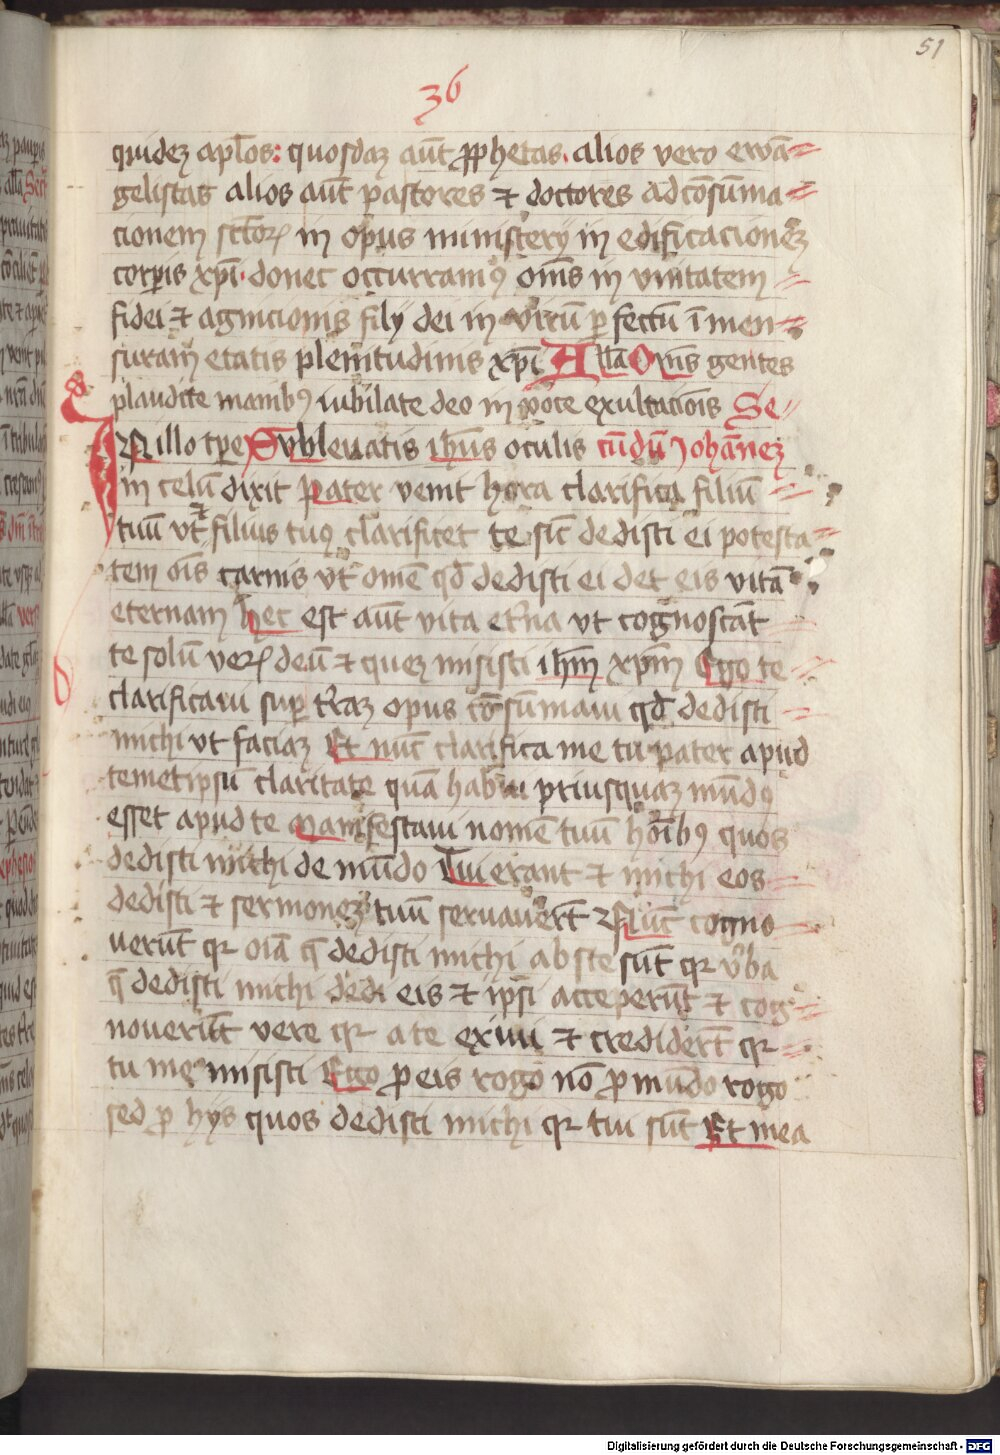 51
36
quidez apl̄os: quosdaz aūt ꝓphetas. alios vero ewā=
gelistas alios aūt pastores ⁊ doctores ad cōsūma=
cionem sctōꝝ in opus ministerÿ in edificacionez
corpis xp̄i. donec occurramꝰ om̄s in vnitatem
fidei ⁊ agnicionis filÿ dei in virū ꝑfectū ī men=
suram etatis plenitudinis xp̄i All̄a Om̄s gentes
plaudite manibꝰ iubilate deo in voce exultaciōis Se=
IN illo tꝑe Subleuatis ih̄us oculis cūdū Johānez
in celū dixit Pater venit hora clarifica filiū
tuū vt ⁊ filius tuꝰ clarificet te sic̄ dedisti ei potesta=
tem oīs carnis vt om̄e qd̄ dedisti ei det eis vitā
eternam hec est aūt vita et̄na vt cognoscāt
te solū veꝝ deū ⁊ quez misisti ih̄m xp̄m Ego te
clarificaui suꝑ t̄raz opus cōsūmaui qd̄ dedisti
michi vt faciaz Et nūc clarifica me tu pater apud
temetipsū claritate quā habui priusquaz mūdꝰ
esset apud te Manifestaui nomē tuū hoībꝰ quos
dedisti michi de mūdo Tui erant ⁊ michi eos
dedisti ⁊ sermonez tuū seruauer̄t Nūc cogno
verūt qꝛ oīa q̄ dedisti michi abs te sūt qꝛ v̄ba
q̄ dedisti michi dedi eis ⁊ ip̄si acceperūt ⁊ cog=
nouerūt vere qꝛ a te exiui ⁊ credider̄t qꝛ
tu me misisti Ego ꝓ eis rogo nō ꝓ mūdo rogo
sed ꝓ hÿs quos dedisti michi qꝛ tui sūt Et mea
Digitalisierung gefördert durch die Deutsche Forschungsgemeinschaft - DFG